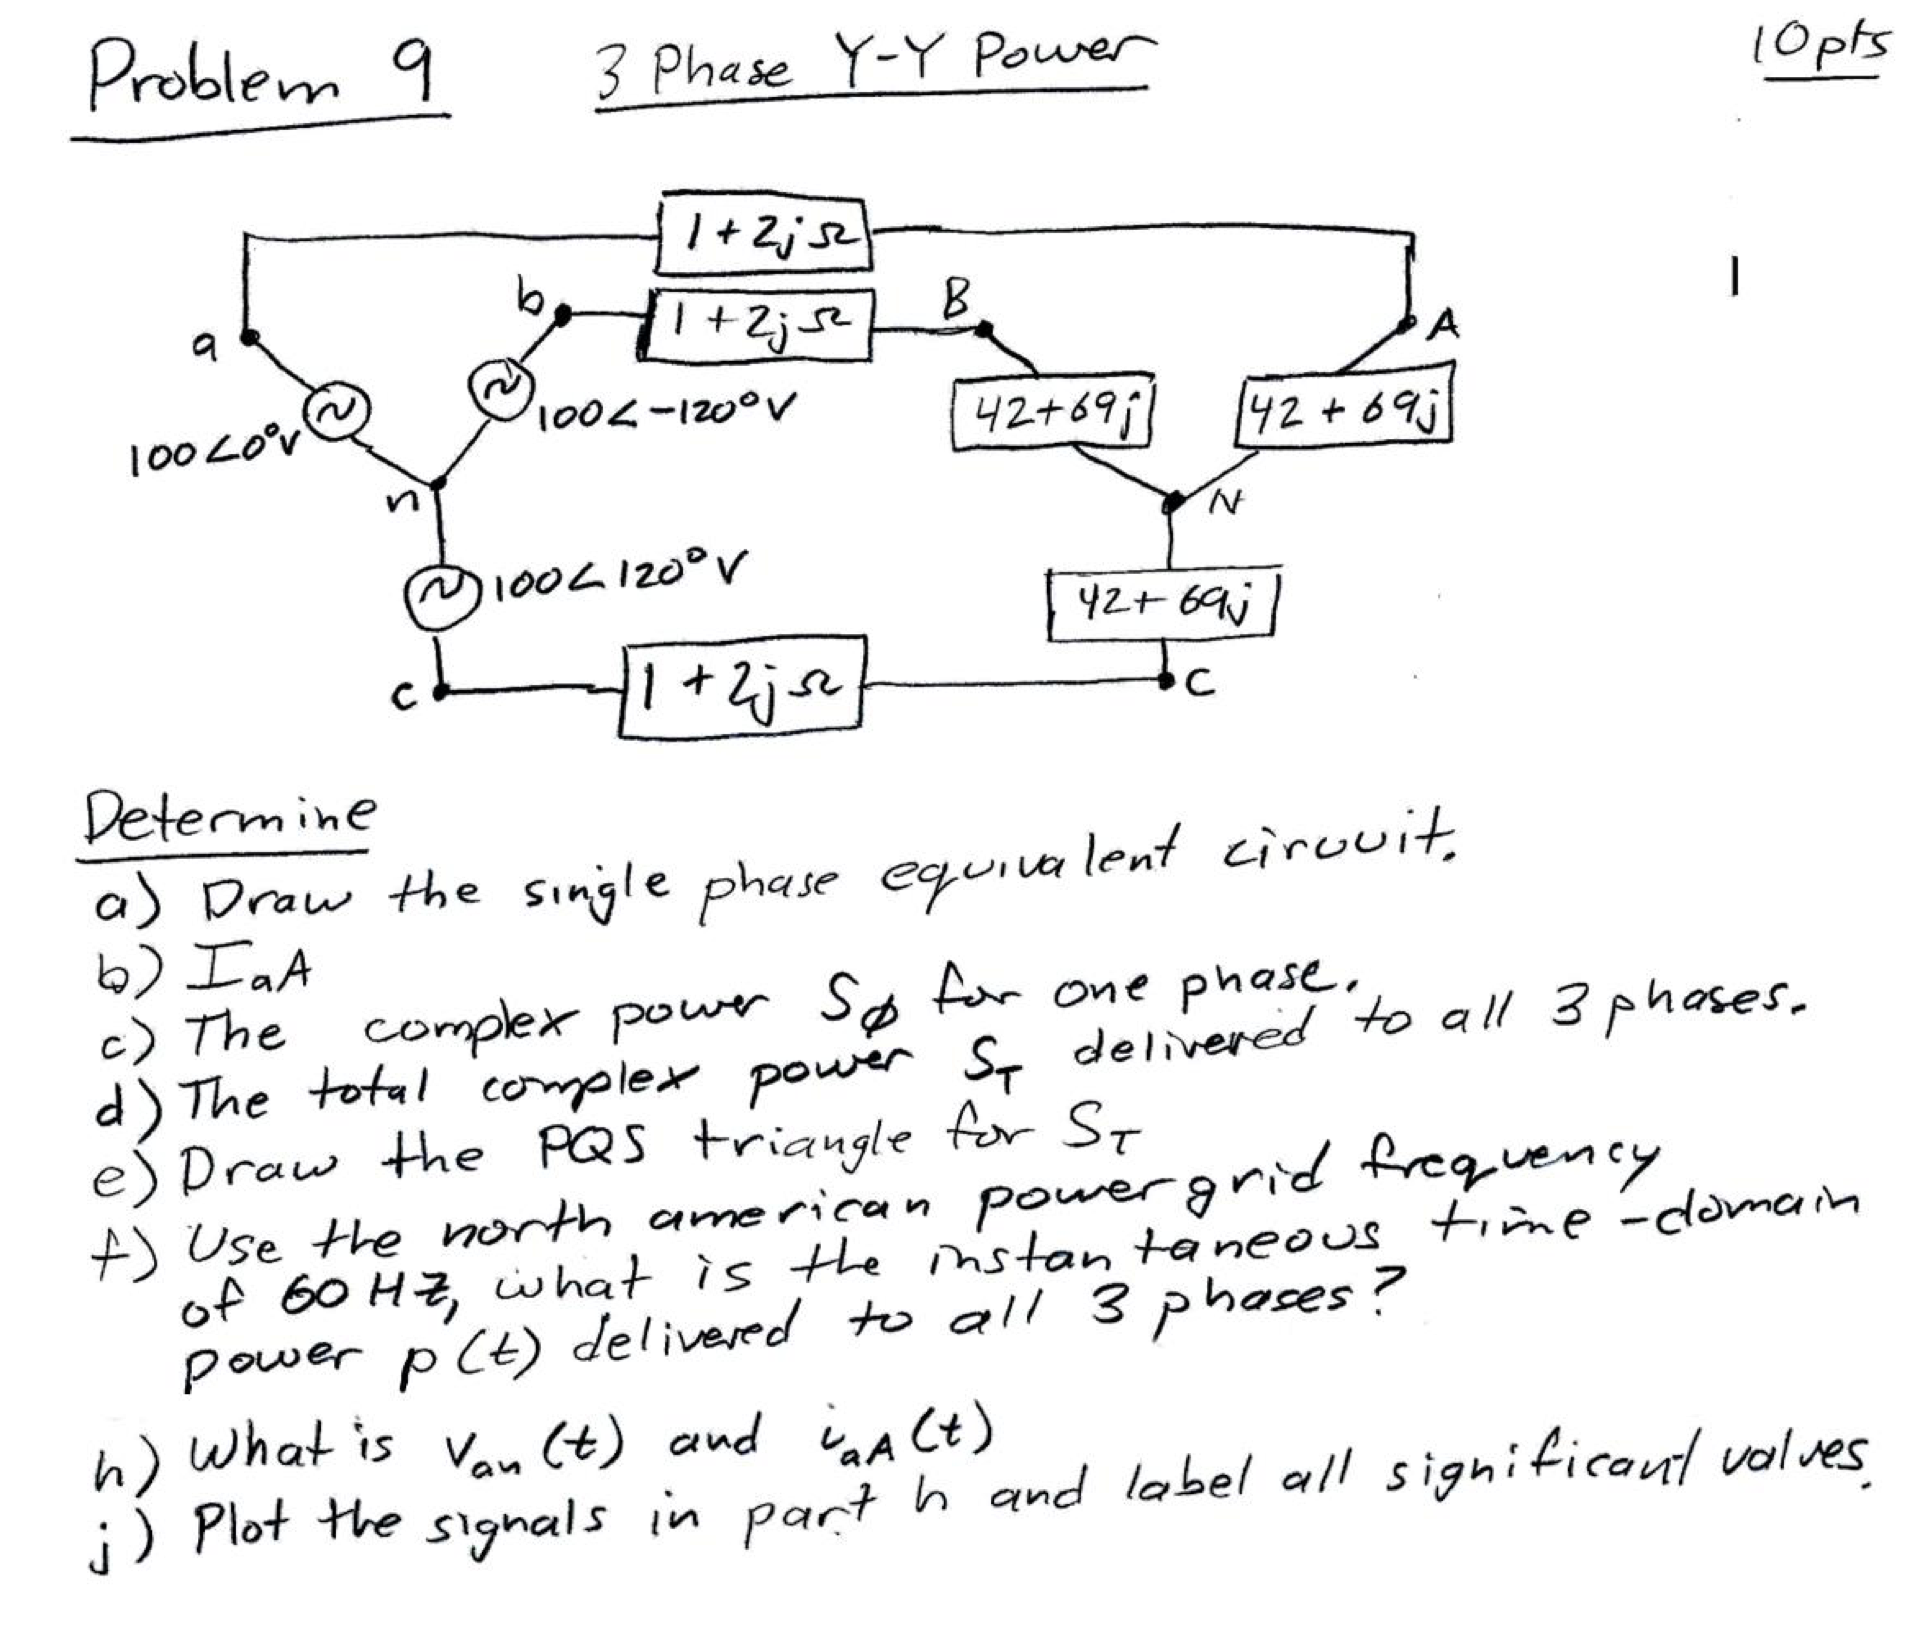 Problem 9 3 Phase Y-Y Power 10pts
1+2jΩ
b 1+2jΩ B
a A
100<0°V 100<-120°V 42+69j 42+69j
n N
100<120°V 42+69j
c 1+2jΩ C
Determine
a) Draw the single phase equivalent circuit.
b) IaA
c) The complex power Sø for one phase.
d) The total complex power ST delivered to all 3 phases.
e) Draw the PQS triangle for ST
f) Use the north american power grid frequency
of 60 HZ, what is the instantaneous time-domain
power p(t) delivered to all 3 phases?
h) What is Van(t) and iaA(t)
j) Plot the signals in part h and label all significant values.